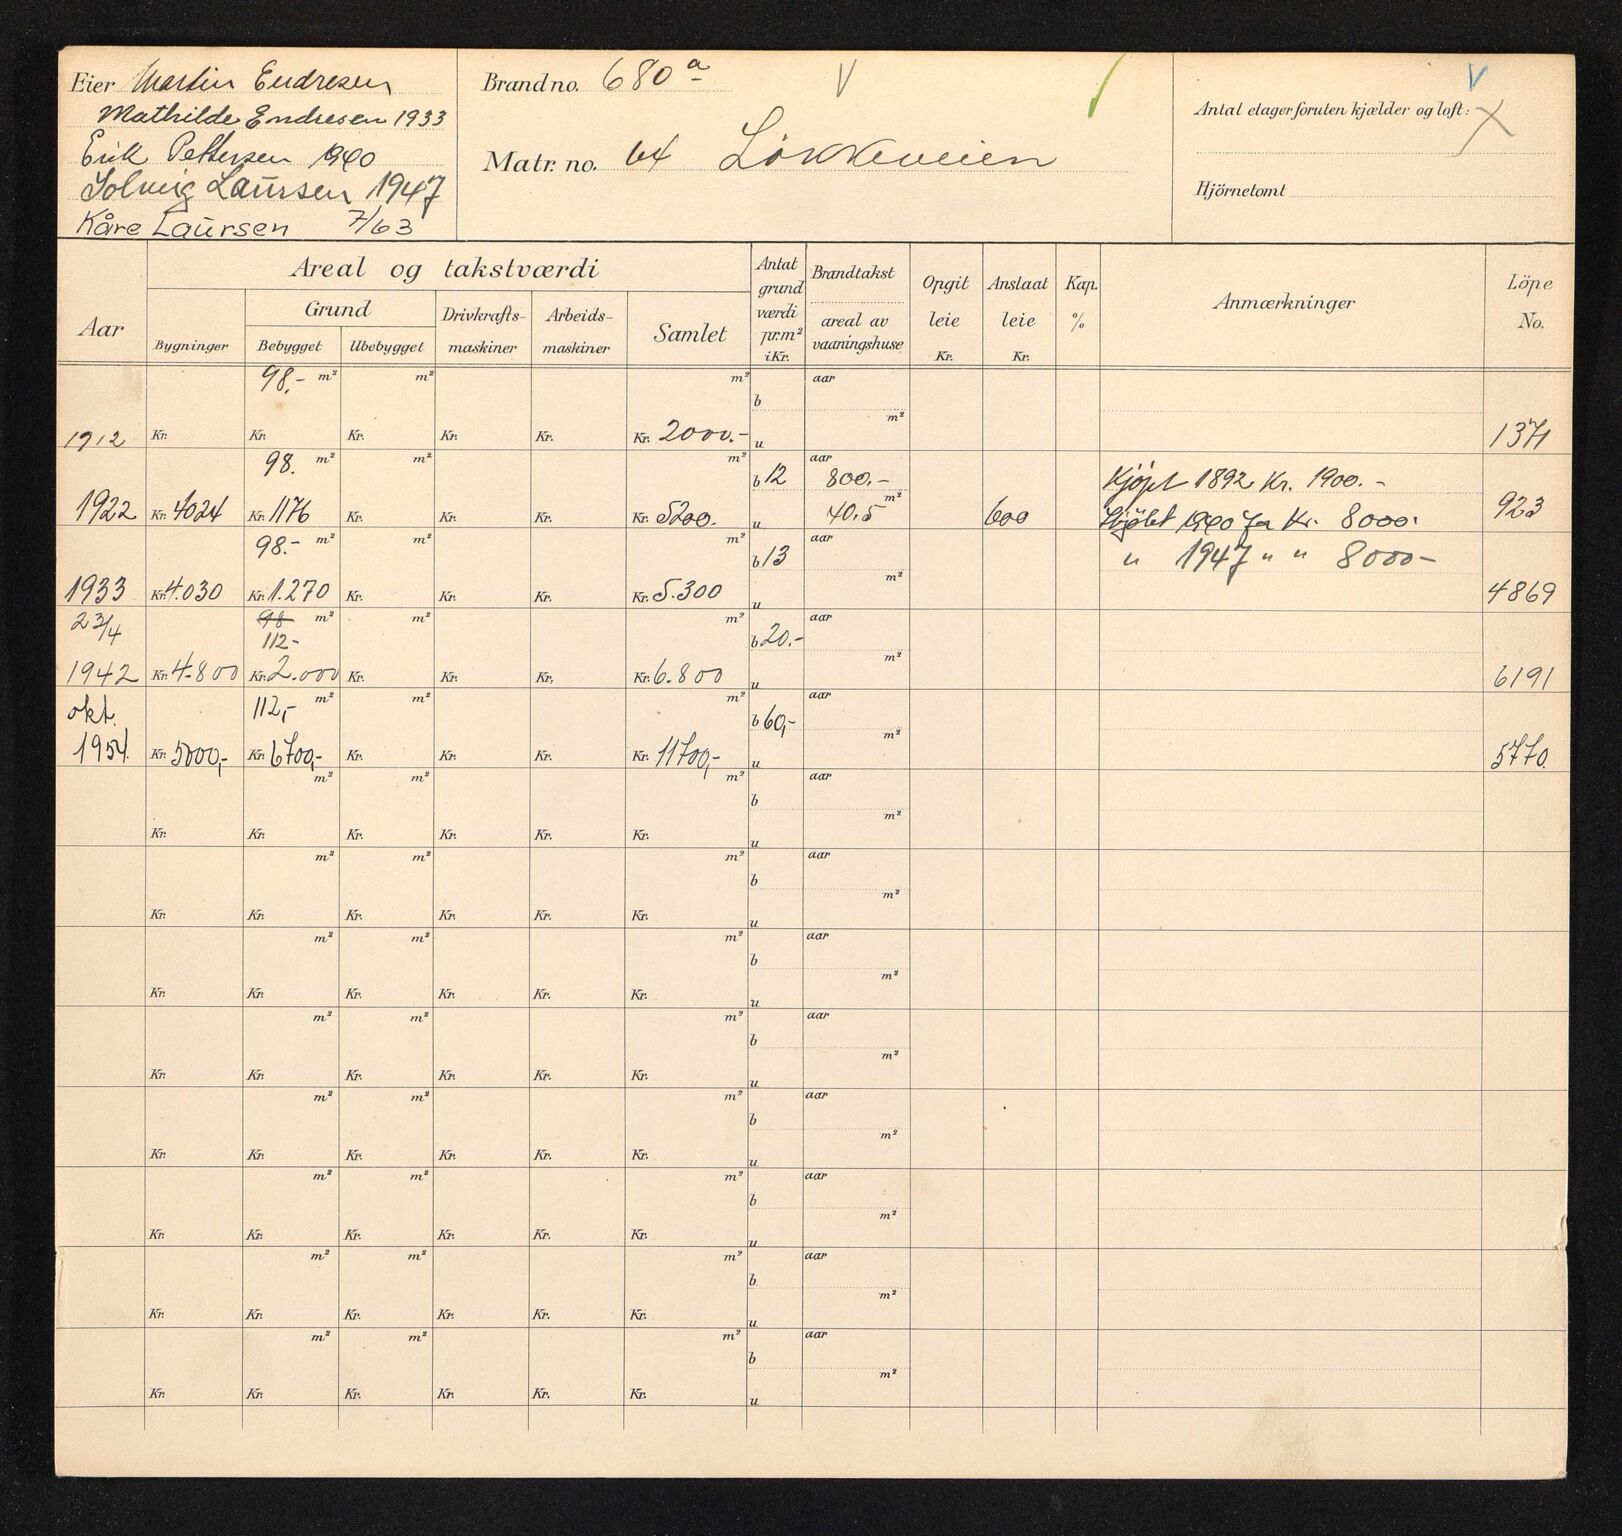 Eier Martin Endresen
Mathilde Endresen 1933
Erik Pettersen 1940
Solveig Laursen 1947
Kåre Laursen 7/63
Brandno. 680 a
Matr. no. 64 Lökkeveien
Antal etager foruten kjælder og loft:
Hjörnetomt
Aar
Areal og takstværdi
Bygninger
Grund
Bebygget Ubebygget
Drivkrafts-maskiner
Arbeids-maskiner
Samlet
Antat grund værdi pr. m² i Kr.
Brandtakst
areal av vaaningshuse
Opgit leie Kr.
Anslaat leie Kr.
Kap. %
Anmærkninger
Löpe No.
98.- m² m² m² b aar m²
1912 Kr. Kr. Kr. Kr. Kr. Kr. 2000.- u 1371
98. m² m² m² b 12 aar 800.- Kjøpt 1892 Kr. 1900.-
1922 Kr. 4024 Kr. 1176 Kr. Kr. Kr. Kr. 5200. u 40.5 m² 600 Kjøbt 1940 for Kr. 8000. 923
98.- m² m² m² b 13 aar m² " 1947 " " 8000-
1933 Kr. 4.030 Kr. 1.270 Kr. Kr. Kr. Kr. 5.300 u 4869
23/4 98 m² m² m² b 20.- aar m²
112-
1942 Kr. 4.800 Kr. 2.000 Kr. Kr. Kr. Kr. 6.800 u 6191
okt. 112,- m² m² m² b 60,- aar m²
1954. Kr. 5000,- Kr. 6700,- Kr. Kr. Kr. Kr. 11700,- u 5770.
m² m² m² b aar m²
Kr. Kr. Kr. Kr. Kr. Kr. u
m² m² m² b aar m²
Kr. Kr. Kr. Kr. Kr. Kr. u
m² m² m² b aar m²
Kr. Kr. Kr. Kr. Kr. Kr. u
m² m² m² b aar m²
Kr. Kr. Kr. Kr. Kr. Kr. u
m² m² m² b aar m²
Kr. Kr. Kr. Kr. Kr. Kr. u
m² m² m² b aar m²
Kr. Kr. Kr. Kr. Kr. Kr. u
m² m² m² b aar m²
Kr. Kr. Kr. Kr. Kr. Kr. u
m² m² m² b aar m²
Kr. Kr. Kr. Kr. Kr. Kr. u